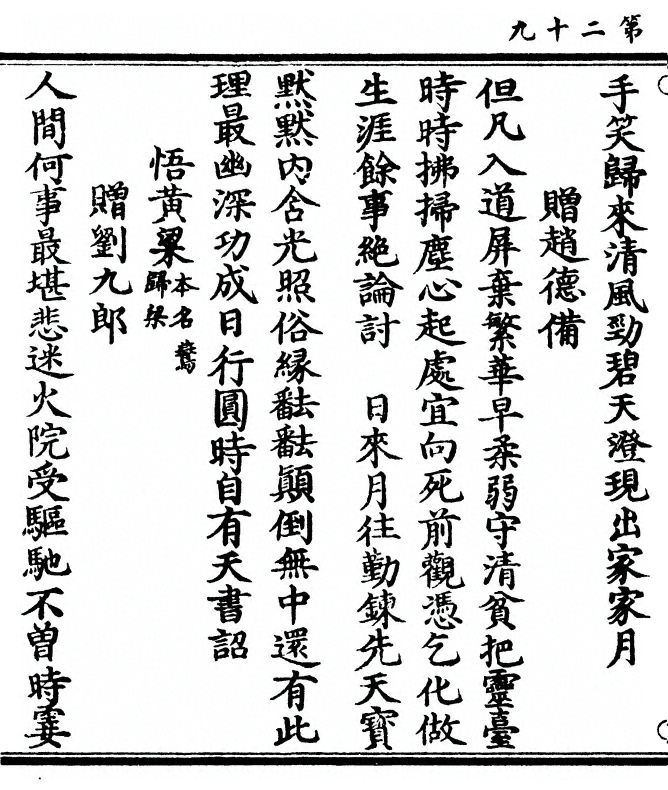 第二十九
手笑歸來清風勁碧天澄現出家家月
贈趙德備
但凡入道屏棄繁華早柔弱守清貧把靈臺
時時拂掃塵心起處宜向死前觀憑乞化做
生涯餘事絶論討　日來月往勤鍊先天寶
默默內含光照俗緣飜飜顛倒無中還有此
理最幽深功成日行圓時自有天書詔
悟黃粱本名鶯歸梁
贈劉九郎
人間何事最堪悲迷火院受驅馳不曽時霎